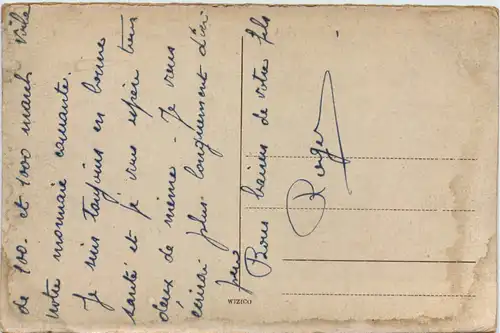 de 100. et 1000 marck Voila
votre monnaie courante.
Je suis toujours en bonne
santé et je vous espère tous
deux de même - Je vous
écrirai plus longuement d'ici
peu
Bons baisers de votre fils
Roger
WIZICO